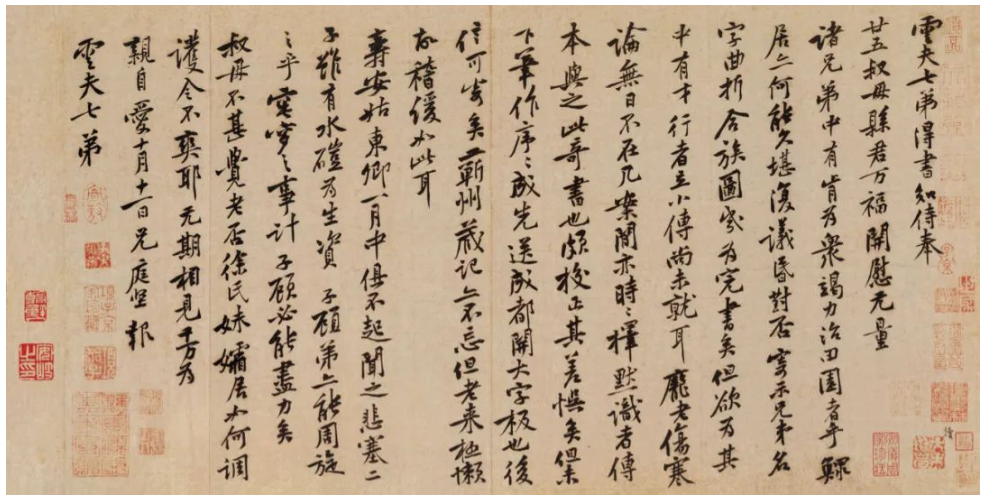 雲夫七弟得書知侍奉
廿五叔母縣君万福開慰无量
諸兄弟中有肯为衆竭力治田園者乎 鰥
居亦何能久堪復議昏對否寄示兄弟名
字曲折合族圖幾为完書矣但欲为其
中有才行者立小傳尚未就耳 龐老傷寒
論無日不在几案間亦時〻擇默識者傳
本與之此奇書也頗校正其差悮矣但未
下筆作序〻成先送成都開大字板也後
信可寄矣 蘄州藏記亦不忘但老来極懶
故稽緩如此耳
壽安姑東卿一月中俱不起聞之悲塞二
子雖有水磑为生資 子顧弟亦能周旋
之乎 窀穸之事計子顧必能盡力矣
叔母不甚覺老否徐氏妹孀居如何調
護令不爽耶 无期相見千万为
親自愛十月十一日兄庭堅 報
雲夫七弟